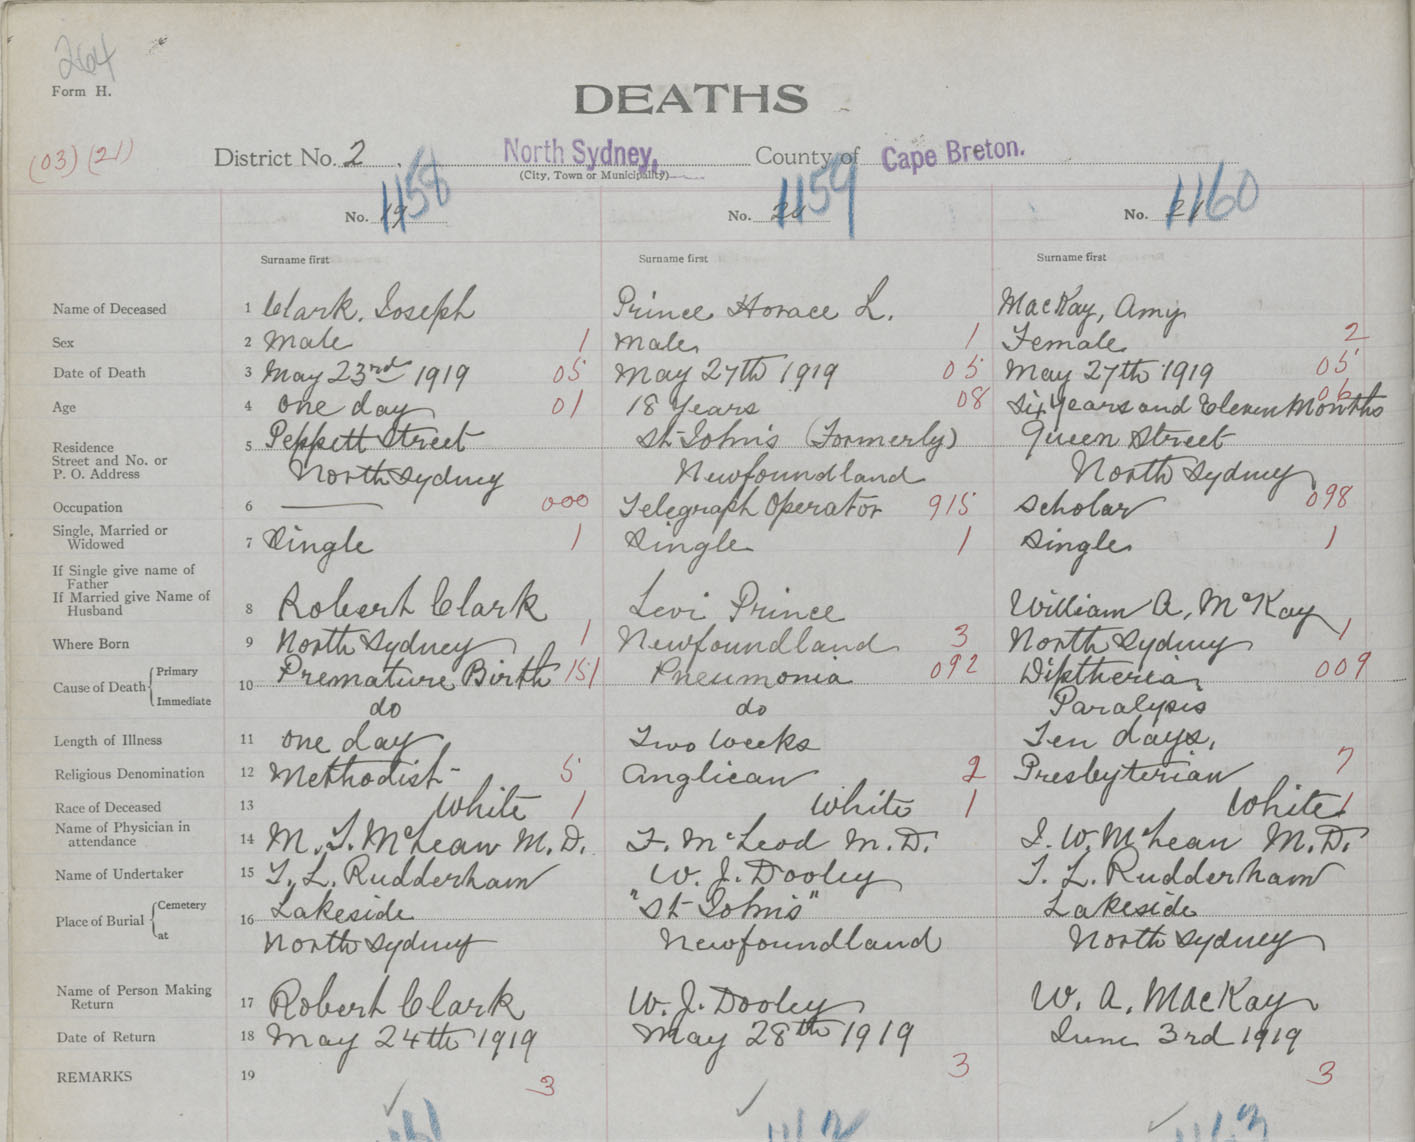 264
Form H.
DEATHS
(03) (21)
District No. 2 North Sydney, County of Cape Breton.
(City, Town or Municipality)
1158 1159 1160
No. 19 No. 20 No. 21
Surname first Surname first Surname first
Name of Deceased 1 Clark, Joseph Prince Horace L. MacKay, Amy
Sex 2 Male 1 Male 1 Female 2
Date of Death 3 May 23rd 1919 05 May 27th 1919 05 May 27th 1919 05
Age 4 one day 01 18 Years 08 Six Years and Eleven Months 06
Residence 5 Peppett Street St. John's (Formerly) Queen Street
Street and No. or
P. O. Address North Sydney Newfoundland North Sydney
Occupation 6 — 000 Telegraph Operator 915 Scholar 098
Single, Married or
Widowed 7 Single 1 Single 1 Single 1
If Single give name of
Father
If Married give Name of
Husband 8 Robert Clark Levi Prince William A. McKay
Where Born 9 North Sydney 1 Newfoundland 3 North Sydney 1
Cause of Death Primary 10 Premature Birth 151 Pneumonia 092 Diptheria 009
Immediate do do Paralysis
Length of Illness 11 one day Two Weeks Ten days,
Religious Denomination 12 Methodist 5 Anglican 2 Presbyterian 7
Race of Deceased 13 White 1 White 1 White 1
Name of Physician in
attendance 14 M. T. McLean M.D. F. McLeod M.D. J. W. McLean M.D.
Name of Undertaker 15 T. L. Rudderham W. J. Dooley T. L. Rudderham
Place of Burial Cemetery 16 Lakeside "St. John's" Lakeside
at North Sydney Newfoundland North Sydney
Name of Person Making
Return 17 Robert Clark W. J. Dooley W. A. MacKay
Date of Return 18 May 24th 1919 May 28th 1919 June 3rd 1919
REMARKS 19 3 3 3